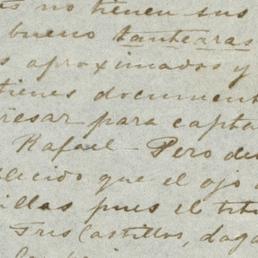 no tienen sus
bueno
s aproximados y
tienes document
resar para capta
Rafael - Pero des
lecido que el ojo
illas pues el tit
Tres Castillos, daga